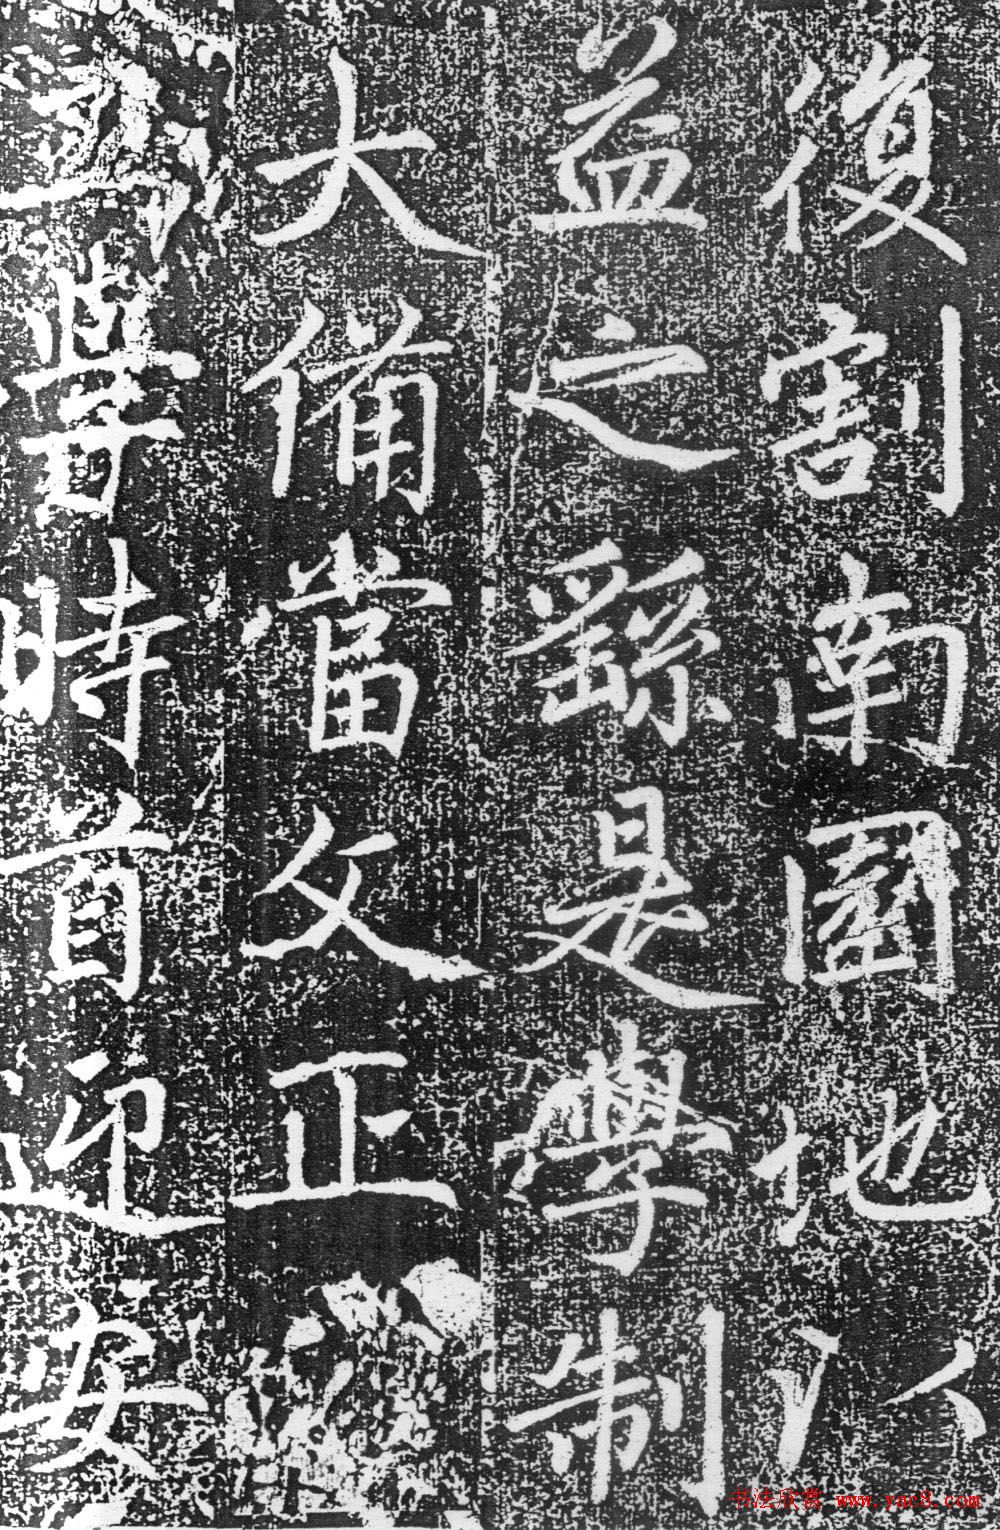 復割南園地以
益之繇是學制
大備當文正
時首迎安
书法欣赏 www.yac8.com